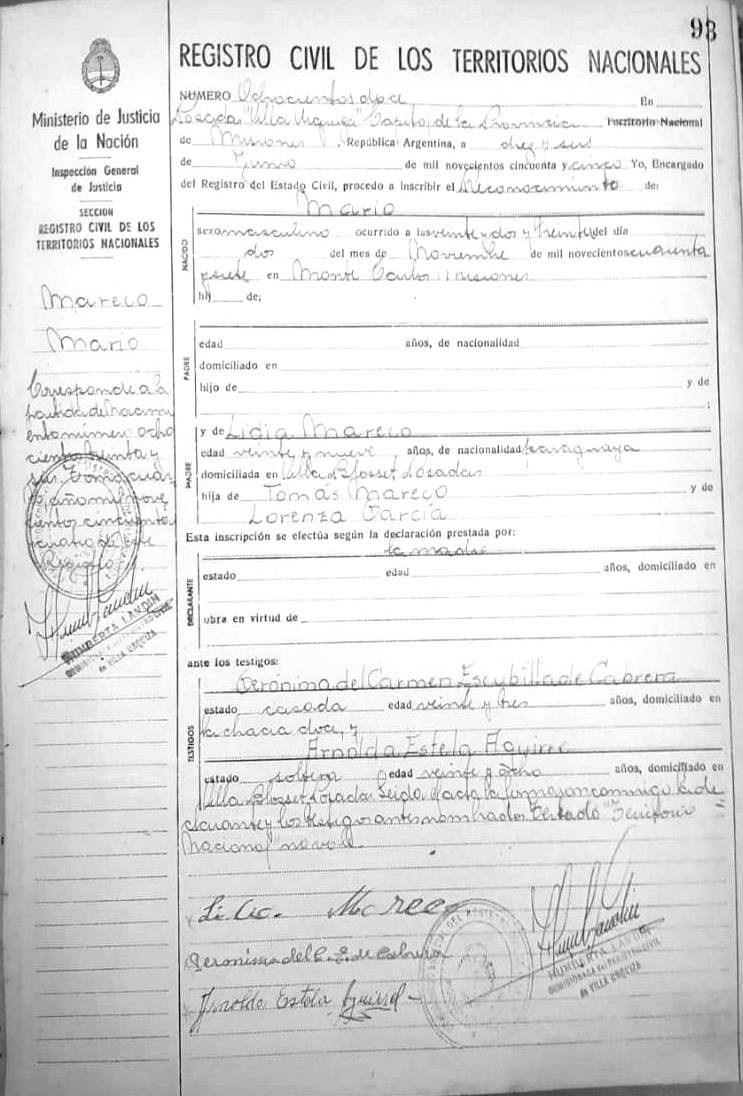 93
REGISTRO CIVIL DE LOS TERRITORIOS NACIONALES
Ministerio de Justicia
de la Nación
Inspección General
de Justicia
SECCION
REGISTRO CIVIL DE LOS
TERRITORIOS NACIONALES
Mareco
Mario
Corresponde a la
partida de Nacimi
ento número ocho
ciento treinta y
Tomo cua
año mil nove
cientos cincuenta
cuatro de este
Registro
HUMBERTA LANDIN
EN VILLA URQUIZA
NUMERO Ochocientos doce En
Posadas "Villa Urquiza" Capital de la Provincia Territorio Nacional
de Misiones, República Argentina, a diez y seis
de Junio de mil novecientos cincuenta y cinco Yo, Encargado
del Registro del Estado Civil, procedo a inscribir el Reconocimiento de:
NACIDO
Mario
sexo masculino ocurrido a las veinte y dos y treinta del día
dos del mes de Noviembre de mil novecientos cuarenta
y siete en Monte Carlo Misiones
hij de;
PADRE
edad años, de nacionalidad
domiciliado en
hijo de y de
;
MADRE
y de Lidia Mareco
edad veinte y nueve años, de nacionalidad paraguaya
domiciliada en Villa Blosset Posadas
hija de Tomás Mareco y de
Lorenza García
Esta inscripción se efectúa según la declaración prestada por:
la madre
DECLARANTE
estado edad años, domiciliado en
obra en virtud de
ante los testigos:
TESTIGOS
Gerónima del Carmen Escubilla de Cabrera
estado casada edad veinte y tres años, domiciliado en
la chacra doce, y
Arnolda Estela Aguirre
estado soltera edad veinte y ocho años, domiciliado en
Villa Blosset Posadas. Leida el acta la firmaron conmigo la de
clarante y los testigos antes nombrados Testado "Territorio
Nacional" no vale
Lidia Mareco
Geronima del C. E. de Cabrera
Arnolda Estela Aguirre
HUMBERTA LANDIN
EN VILLA URQUIZA